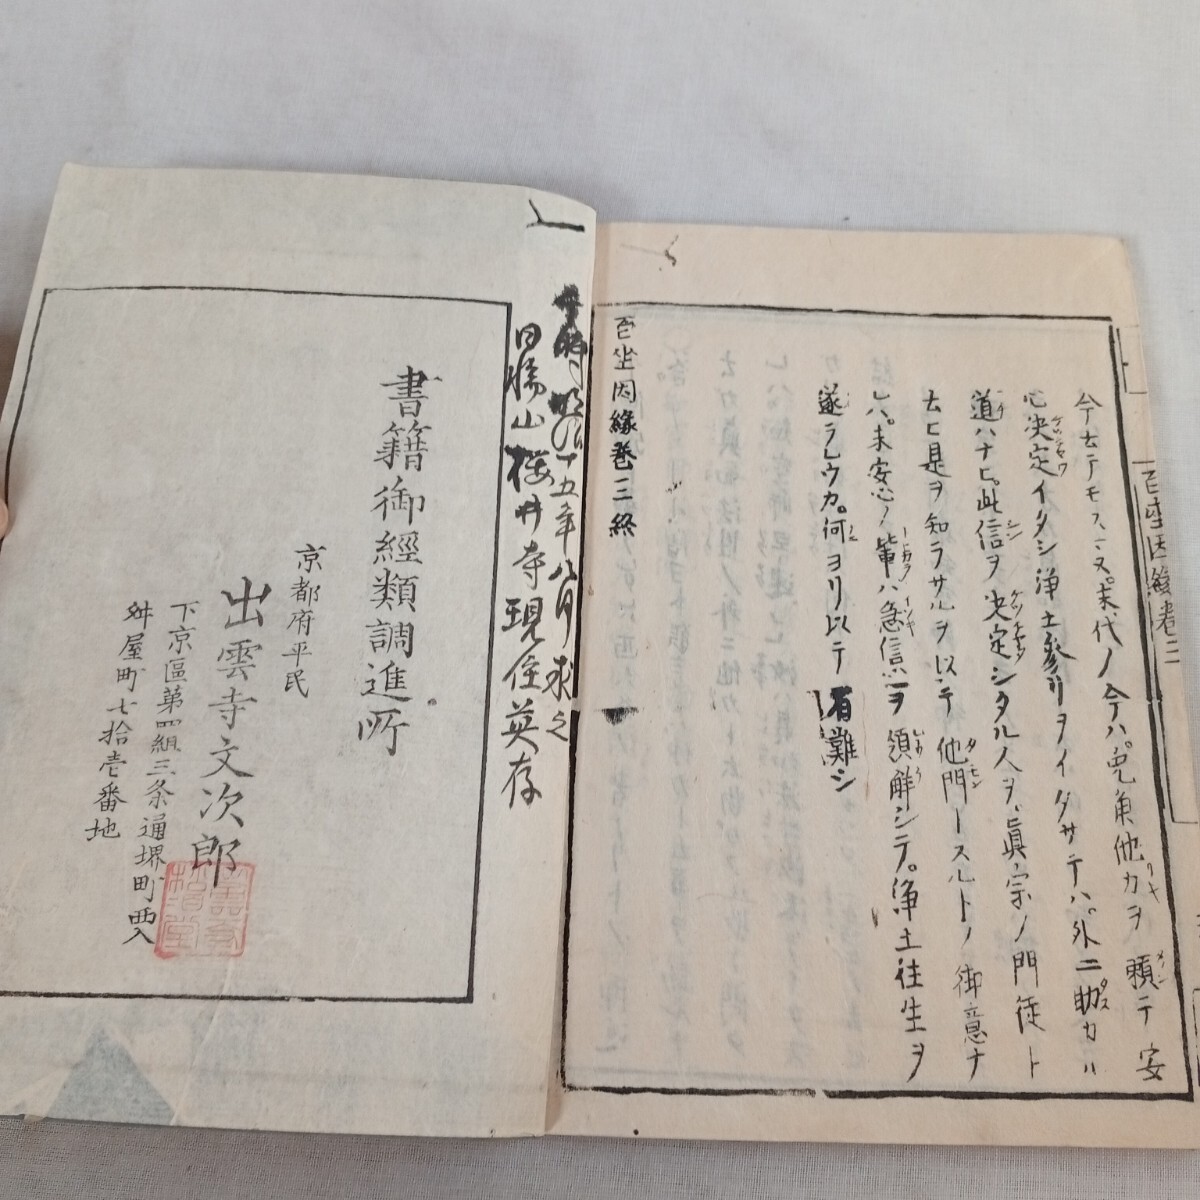 百座因縁巻三
今云テモ
末代ノ今ハ。兎角他力ヲ頼テ安
心決定イタシ浄土參リヲイタサテハ。外ニ助カル
道ハナヒ。此信ヲ決定シタル人ヲ、眞宗ノ門徒ト
云ヒ是ヲ知ラサルヲ以テ他門ースルトノ御意ナ
レハ。未安心ノ輩ハ急信心ヲ領解シテ。浄土往生ヲ
遂ラレウカ。何ヨリ以テ有難シ
百坐因縁巻三終
于時明治十五年八月求之
日勝山櫻井寺現住英存
書籍御經類調進所
京都府平民
出雲寺文次郎
下京區第四組三条通堺町西入
舛屋町七拾壱番地